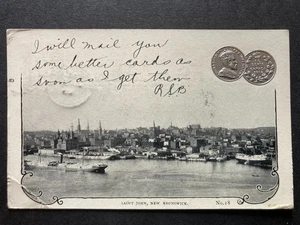 I will mail you
some better cards as
soon as I get them
RSB
SAINT JOHN, NEW BRUNSWICK.
No. 18